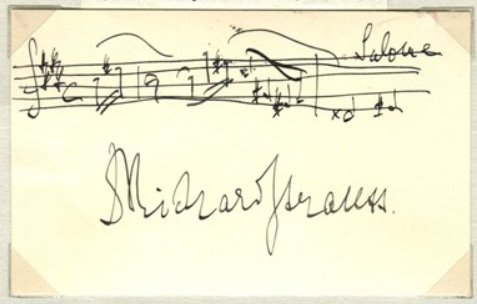 Salome
Richard Strauss.